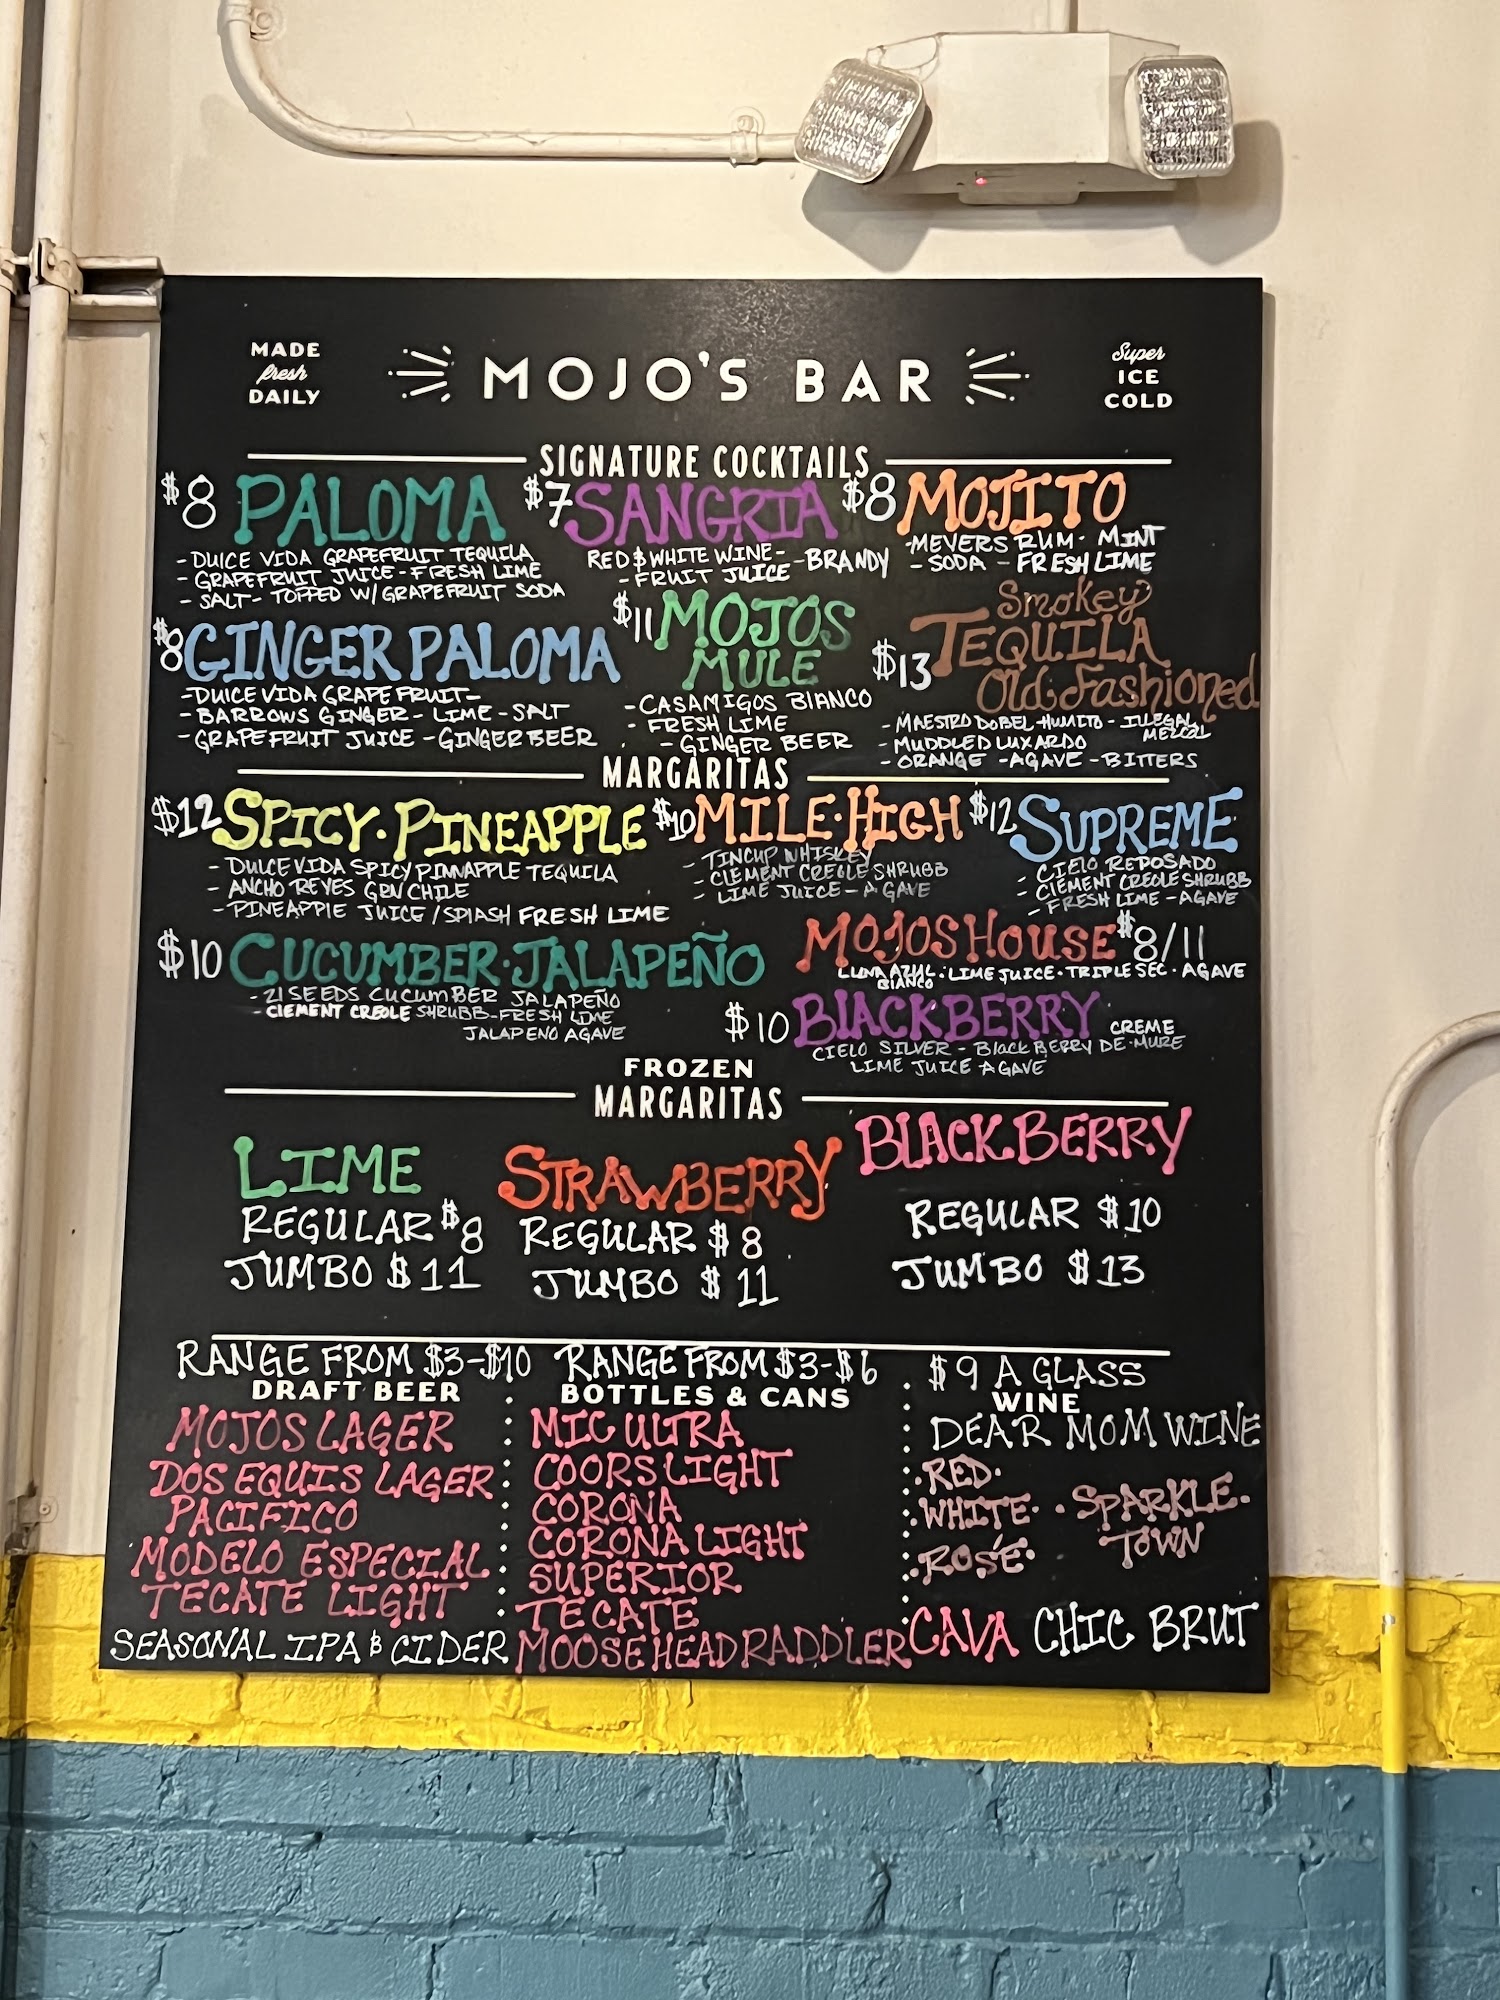 MADE
fresh
DAILY
MOJO'S BAR
Super
ICE
COLD
SIGNATURE COCKTAILS
$8 PALOMA
- DULCE VIDA GRAPEFRUIT TEQUILA
- GRAPEFRUIT JUICE - FRESH LIME
- SALT - TOPPED W/ GRAPEFRUIT SODA
$7 SANGRIA
RED & WHITE WINE - - BRANDY
- FRUIT JUICE
$8 MOJITO
- MEYERS RUM - MINT
- SODA - FRESH LIME
$8 GINGER PALOMA
- DULCE VIDA GRAPEFRUIT -
- BARROWS GINGER - LIME - SALT
- GRAPEFRUIT JUICE - GINGER BEER
$11 MOJOS
MULE
- CASAMIGOS BIANCO
- FRESH LIME
- GINGER BEER
Smokey
$13 TEQUILA
Old Fashioned
- MAESTRO DOBEL HUMITO - ILLEGAL
MEZCAL
- MUDDLED LUXARDO
- ORANGE - AGAVE - BITTERS
MARGARITAS
$12 SPICY · PINEAPPLE
- DULCE VIDA SPICY PINNAPPLE TEQUILA
- ANCHO REYES GRN CHILE
- PINEAPPLE JUICE / SPLASH FRESH LIME
$10 MILE · HIGH
- TINCUP WHISKEY
- CLEMENT CREOLE SHRUBB
- LIME JUICE - AGAVE
$12 SUPREME
- CIELO REPOSADO
- CLEMENT CREOLE SHRUBB
- FRESH LIME - AGAVE
$10 CUCUMBER · JALAPEÑO
- 21 SEEDS CUCUMBER JALAPEÑO
- CLEMENT CREOLE SHRUBB - FRESH LIME
JALAPENO AGAVE
MOJOS HOUSE $8/11
LUNA AZUL · LIME JUICE · TRIPLE SEC · AGAVE
BIANCO
$10 BLACKBERRY
CREME
CIELO SILVER - BLACKBERRY DE MURE
LIME JUICE AGAVE
FROZEN
MARGARITAS
LIME
REGULAR $8
JUMBO $11
STRAWBERRY
REGULAR $8
JUMBO $11
BLACKBERRY
REGULAR $10
JUMBO $13
RANGE FROM $3-$10
DRAFT BEER
MOJOS LAGER
DOS EQUIS LAGER
PACIFICO
MODELO ESPECIAL
TECATE LIGHT
SEASONAL IPA & CIDER
RANGE FROM $3-$6
BOTTLES & CANS
MIC ULTRA
COORS LIGHT
CORONA
CORONA LIGHT
SUPERIOR
TECATE
MOOSEHEAD RADDLER
$9 A GLASS
WINE
DEAR MOM WINE
· RED ·
· WHITE ·
· ROSÉ ·
· SPARKLE ·
TOWN
CAVA CHIC BRUT